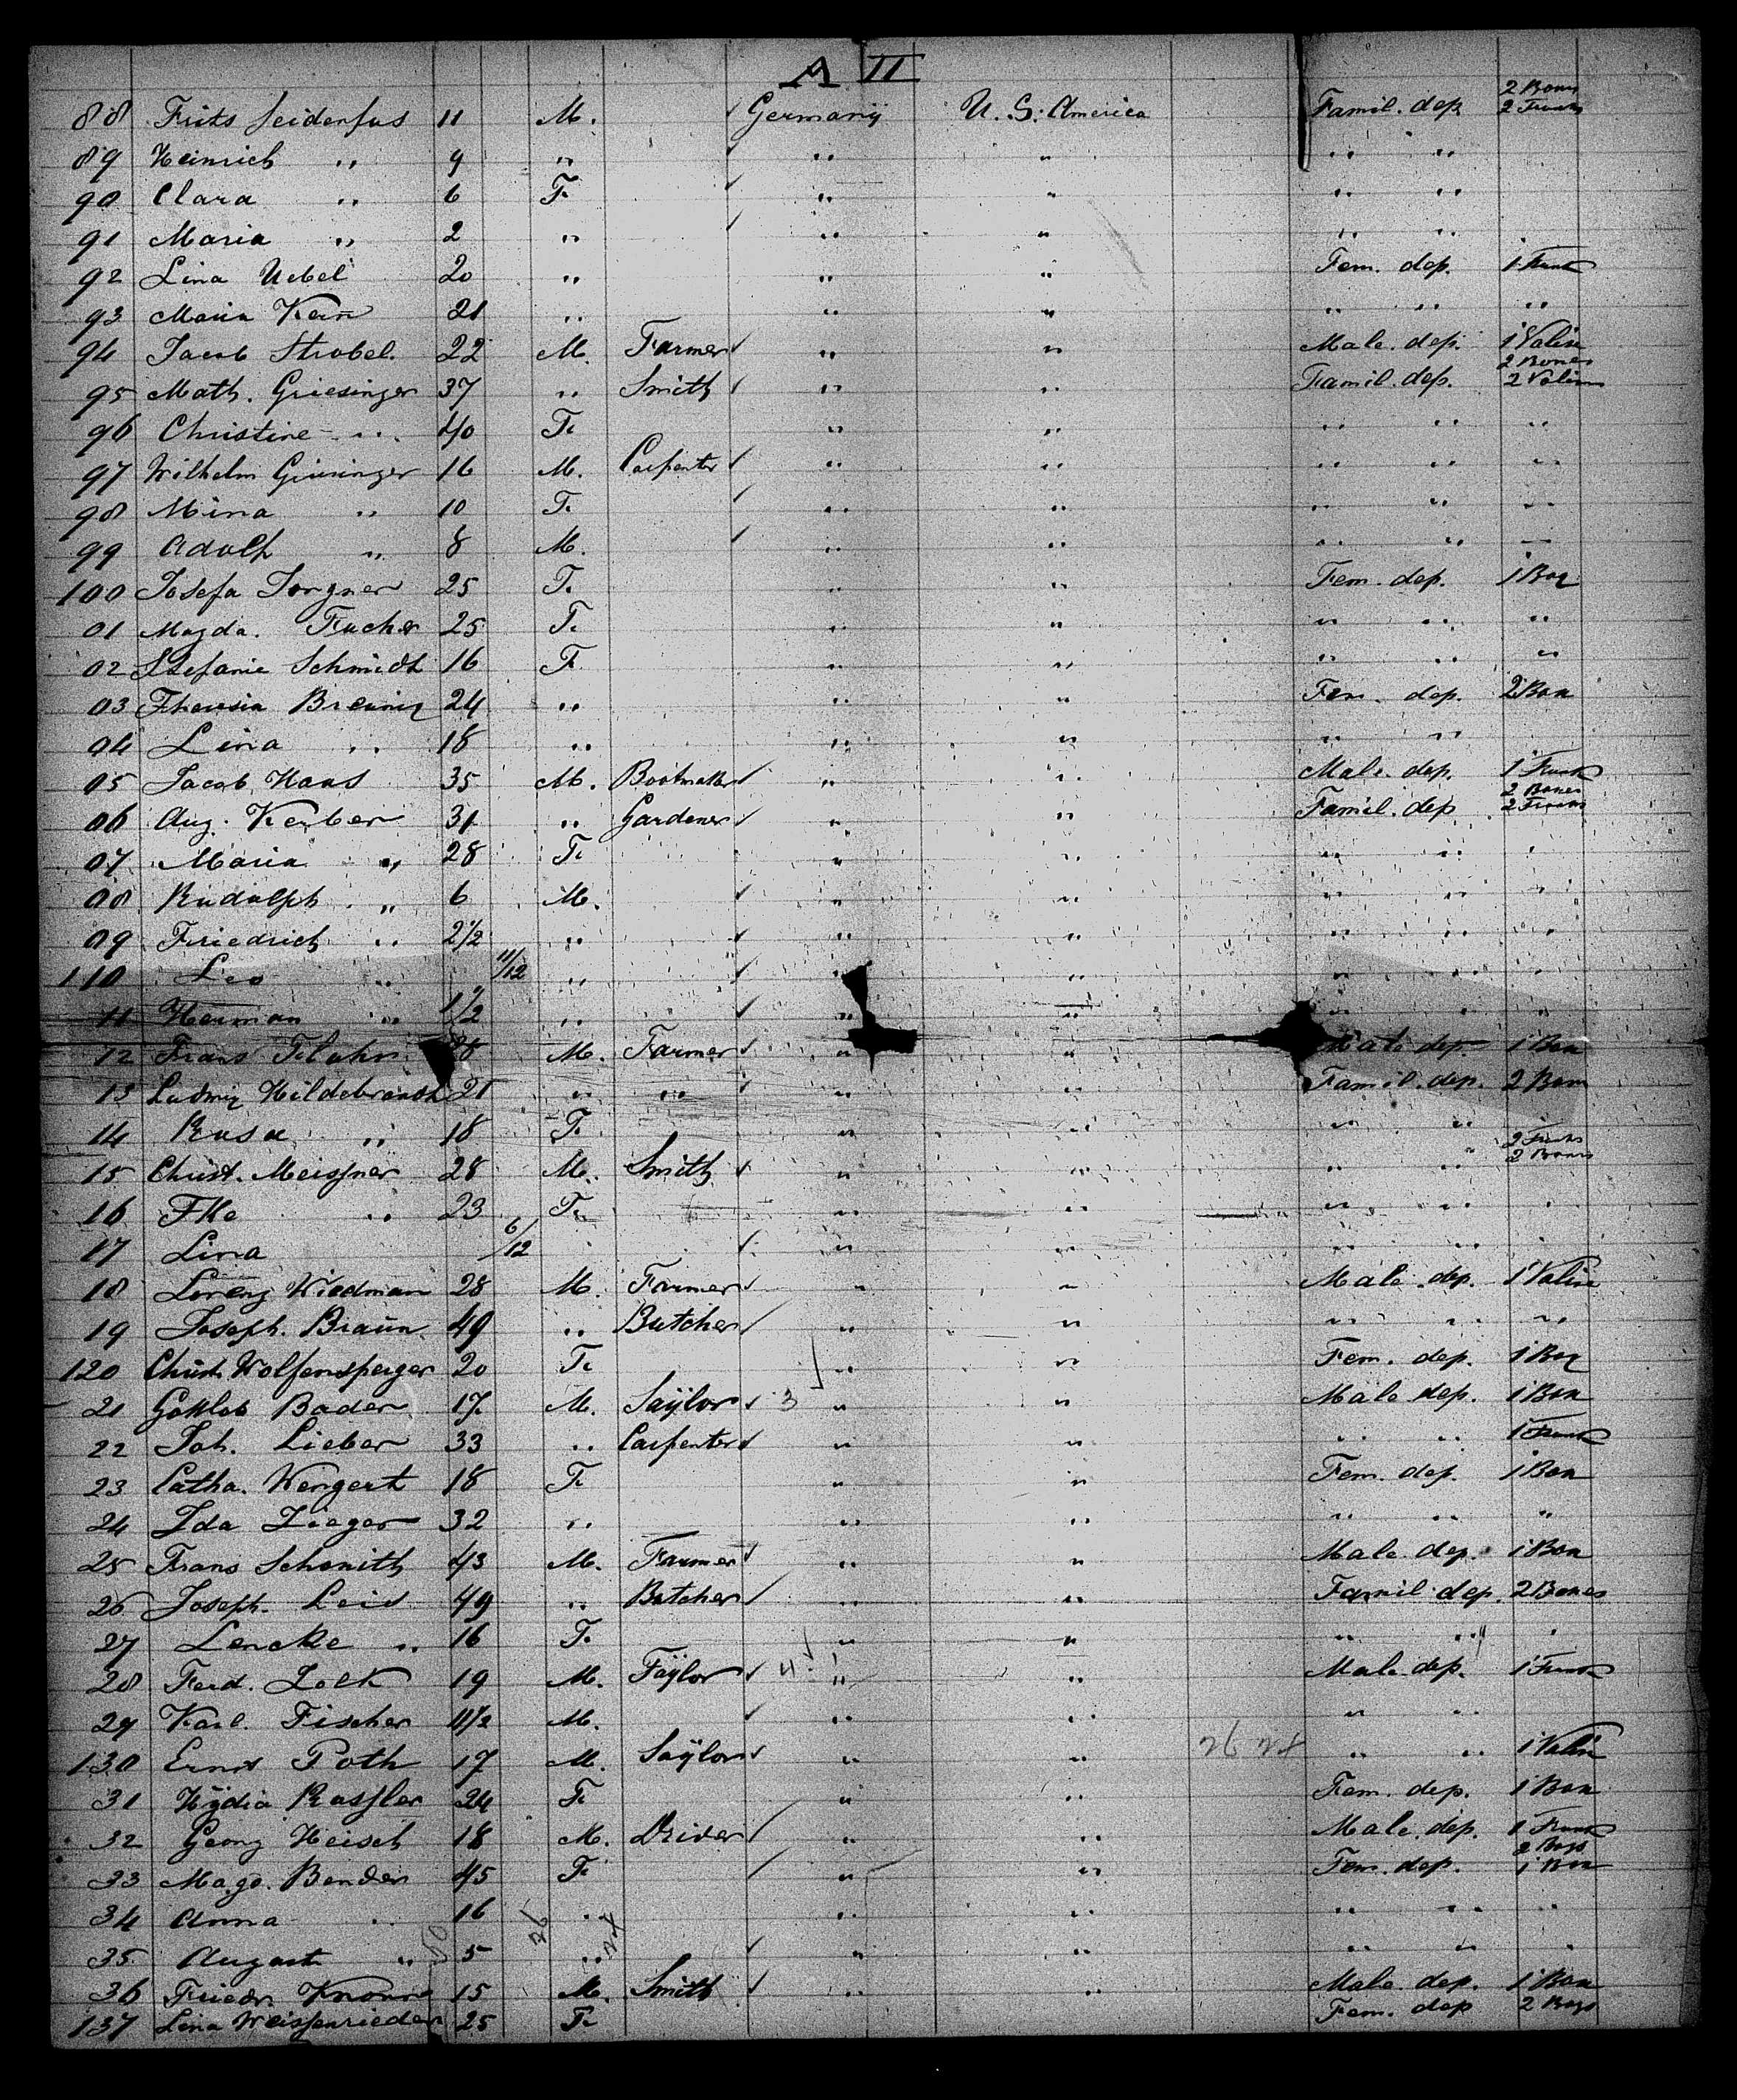 A II
88 Frits Seidenfus 11 M. Germany U. S. America Famil. dep. 2 Boxes 2 Trunks
89 Heinrich " 9 " " " " "
90 Clara " 6 F. " " " "
91 Maria " 2 " " " " "
92 Lina Uebel 20 " " " Fem. dep. 1 Trunk
93 Maria Kern 21 " " " " " "
94 Jacob Strobel 22 M. Farmer " " Male. dep. 1 Valise
95 Math. Griesinger 37 " Smith " " Famil. dep. 2 Boxes 2 Valises
96 Christine " 40 F. " " " " "
97 Wilhelm 16 M. Carpenter " " " " "
98 Mina " 10 F. " " " " "
99 Adolf " 8 M. " " " " "
100 Josefa Sorgner 25 F. " " Fem. dep. 1 Bag
01 Magda. 25 F. " " " " "
02 Stefanie Schmidt 16 F. " " " " "
03 Theresia Breunig 24 " " " Fem. dep. 2 Box
04 Lina " 18 " " " " "
05 Jacob Haas 35 M. Bootmaker " " Male. dep. 1 Trunk
06 Aug. Kerber 31 " Gardener " " Famil. dep 2 Boxes 2 Trunks
07 Maria " 28 F. " " " " "
08 Rudolph " 6 M. " " " " "
09 Friedrich " 2½ " " " " " "
110 Leo " 11/12 " " " " " "
11 Herman " 1½ " " " " " "
12 Frans M. Farmer " " Male dep. 1 Box
13 Ludwig Hildebrandt 21 " " " " Famil. dep. 2 Boxes
14 Rosa " 18 F. " " " "
15 Christ. Meissner 28 M. Smith " " " " 2 Trunks 2 Boxes
16 Fke " 23 F. " " " " "
17 Lina 6/12 " " " " "
18 Lorenz Wiedman 28 M. Farmer " " Male. dep. 1 Valise
19 Joseph. Braun 49 " Butcher " " " " "
120 Christ. Wolfensperger 20 F. " " Fem. dep. 1 Bag
21 Gottlob Bader 17 M. Saÿlor 3 " " Male dep. 1 Box
22 Joh. Lieber 33 " Carpenter " " " " 1 Trunk
23 Catha. Wengert 18 F. " " Fem. dep. 1 Box
24 Ida Zieger 32 " " " " " "
25 Frans Schmith 43 M. Farmer " " Male. dep. 1 Box
26 Joseph. Leis 49 " Butcher " " Famil. dep. 2 Boxes
27 Lencke " 16 F. " " " " "
28 Ferd. Zock 19 M. Taÿlor 4 " " Male. dep. 1 Trunk
29 Karl. Fischer 11½ M. " " " "
130 Ernst Poth 17 M. Saÿlor " " 26 24 " " 1 Valise
31 Hÿdia Rassler 24 F. " " Fem. dep. 1 Box
32 Georg Heisch 18 M. Driver " " Male. dep. 1 Trunk
33 Magd. Bender 45 F. " " Fem. dep. 2 Bags 1 Box
34 Anna " 16 " " " " " "
35 August " 5 " " " " " "
36 Friedr. 15 M. Smith " " Male. dep. 1 Box
137 Lina Weissenrieder 25 F. Fem. dep 2 Bags